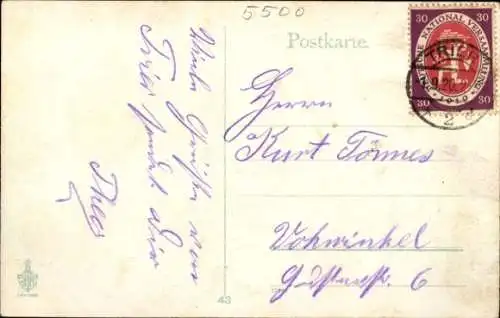 5500
Postkarte.
30 30
DEUTSCHE NATIONALVERSAMMLUNG
1919
30 30
TRIER
2
Herrn
Kurt Tönnes
Vohwinkel
Gustavstr. 6
Viele Grüße von
Trier sendet Dir
Theo
43